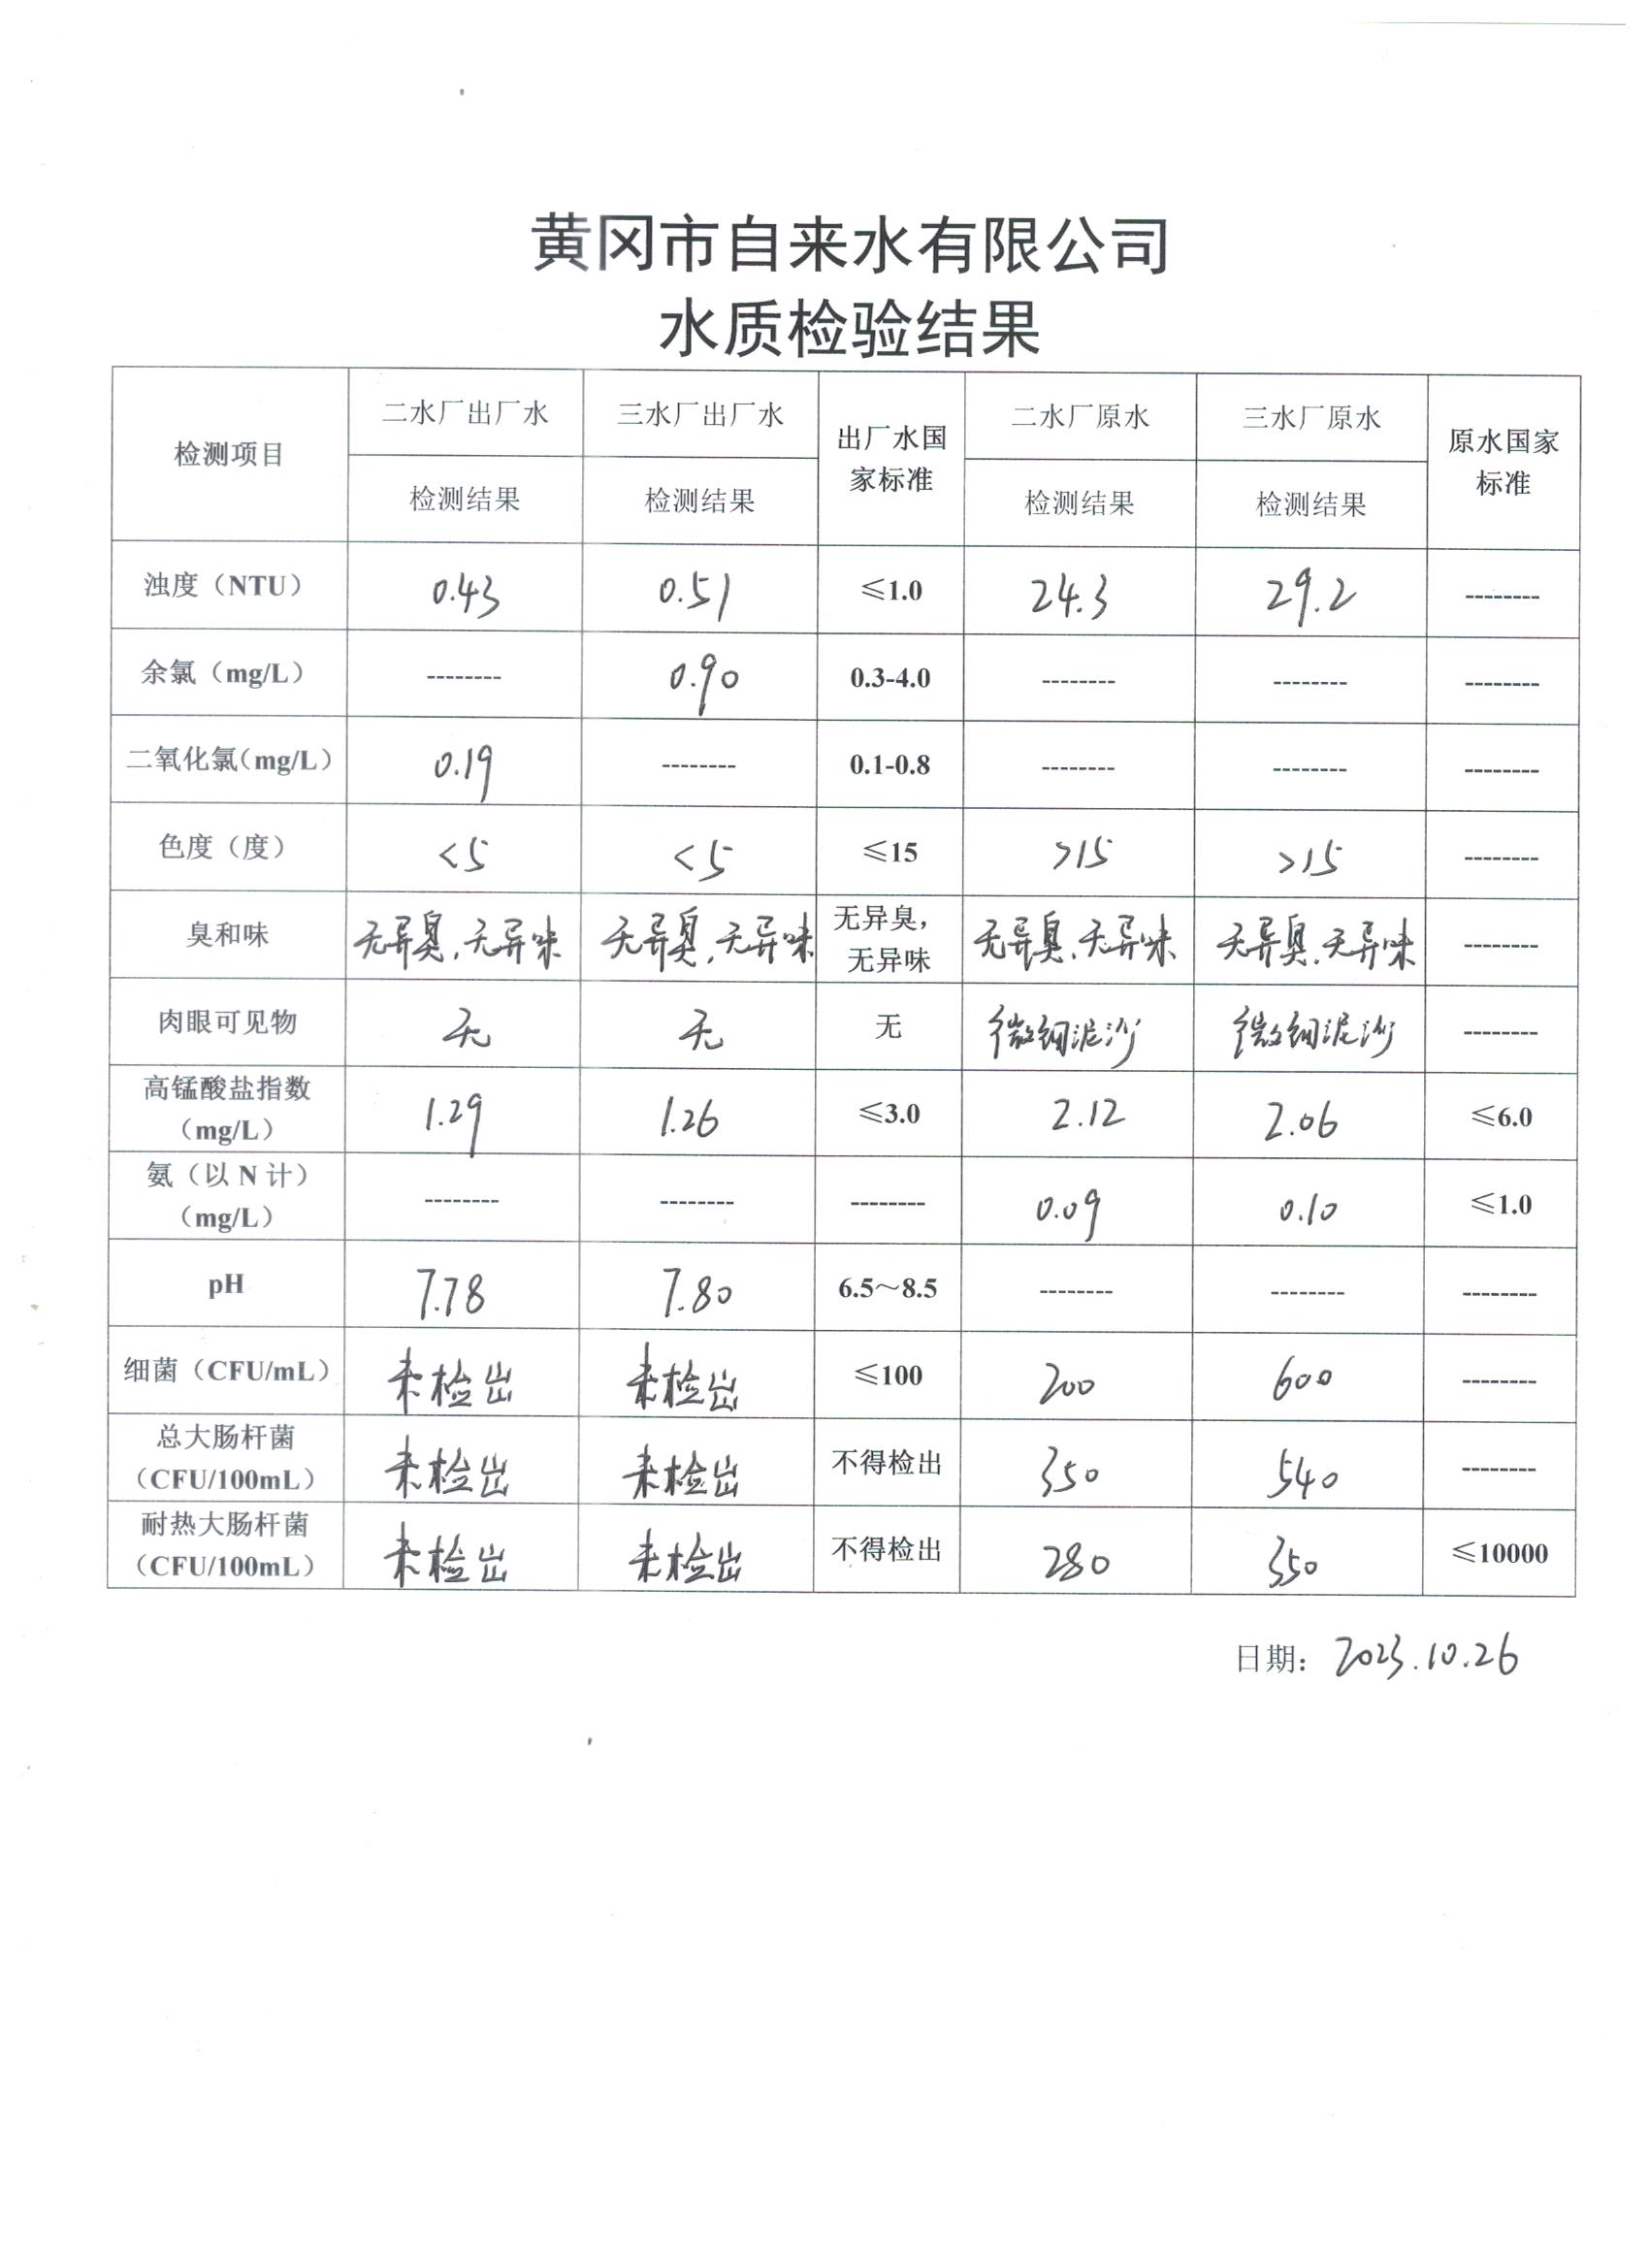 黄冈市自来水有限公司
水质检验结果
检测项目 二水厂出厂水 三水厂出厂水 出厂水国家标准 二水厂原水 三水厂原水 原水国家标准
检测结果 检测结果 检测结果 检测结果
浊度（NTU） 0.43 0.51 ≤1.0 24.3 29.2 --------
余氯（mg/L） -------- 0.90 0.3-4.0 -------- -------- --------
二氧化氯（mg/L） 0.19 -------- 0.1-0.8 -------- -------- --------
色度（度） <5 <5 ≤15 >15 >15 --------
臭和味 无异臭,无异味 无异臭,无异味 无异臭，无异味 无异臭.无异味 无异臭.无异味 --------
肉眼可见物 无 无 无 微细泥沙 微细泥沙 --------
高锰酸盐指数（mg/L） 1.29 1.26 ≤3.0 2.12 2.06 ≤6.0
氨（以 N 计）（mg/L） -------- -------- -------- 0.09 0.10 ≤1.0
pH 7.78 7.80 6.5～8.5 -------- -------- --------
细菌（CFU/mL） 未检出 未检出 ≤100 200 600 --------
总大肠杆菌（CFU/100mL） 未检出 未检出 不得检出 350 540 --------
耐热大肠杆菌（CFU/100mL） 未检出 未检出 不得检出 280 350 ≤10000
日期：2023.10.26